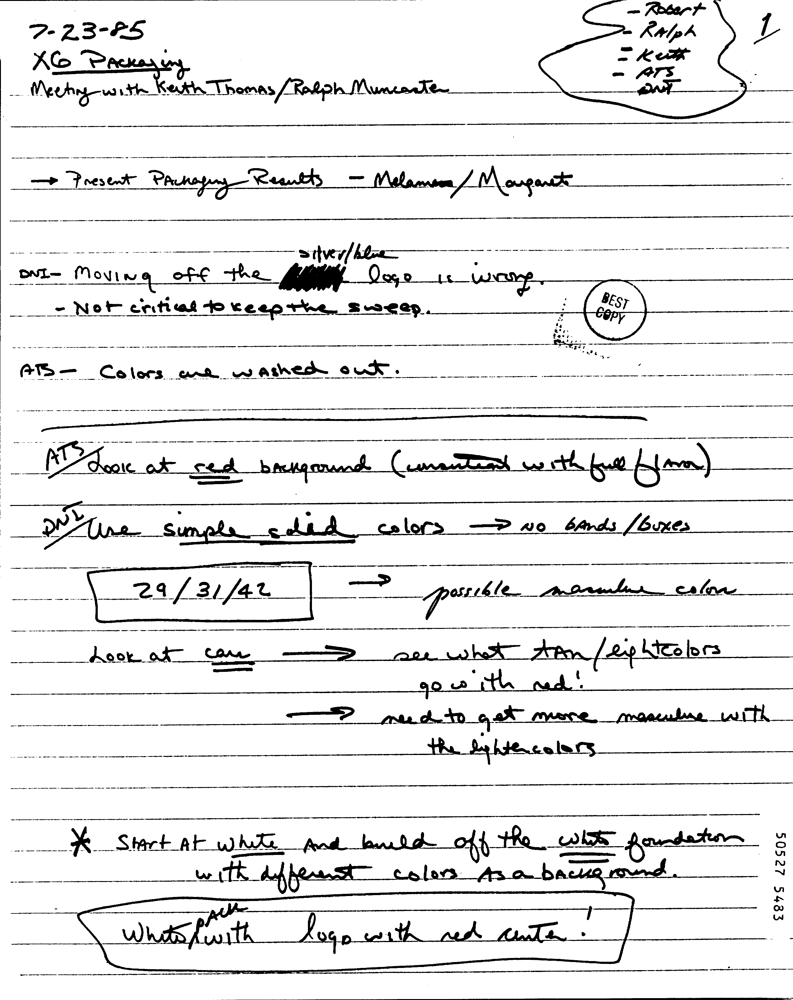 - Robert
- RAlph
= Keith
- ATS
DNI
1
7-23-85
XG Packaging
Meeting with Keith Thomas/Ralph Muncaster
→ Present Packaging Results - Melamess/Margaret
silver/blue
DNI- Moving off the logo is wrong.
- Not critical to keep the sweep.
BEST COPY
ATS- Colors are washed out.
ATS/ Look at red background (consistent with full flavor)
DNI/ Use simple solid colors → NO bands/boxes
29/31/42 → possible masculine colors
Look at cars → see what tAn/lightcolors
go with red!
→ need to get more masculine with
the lighter colors
* Start At white And build off the white foundation
with different colors As a background.
White PACK with logo with red center!
50527 5483